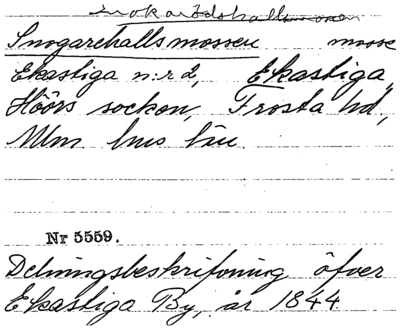 Snogarehallsmossen mosse
Ekastiga n:r 2, Ekastiga,
Höörs socken, Frosta hd,
Mlm hus län.
Nr 5559.
Delningsbeskrifning öfver
Ekastiga By, år 1844